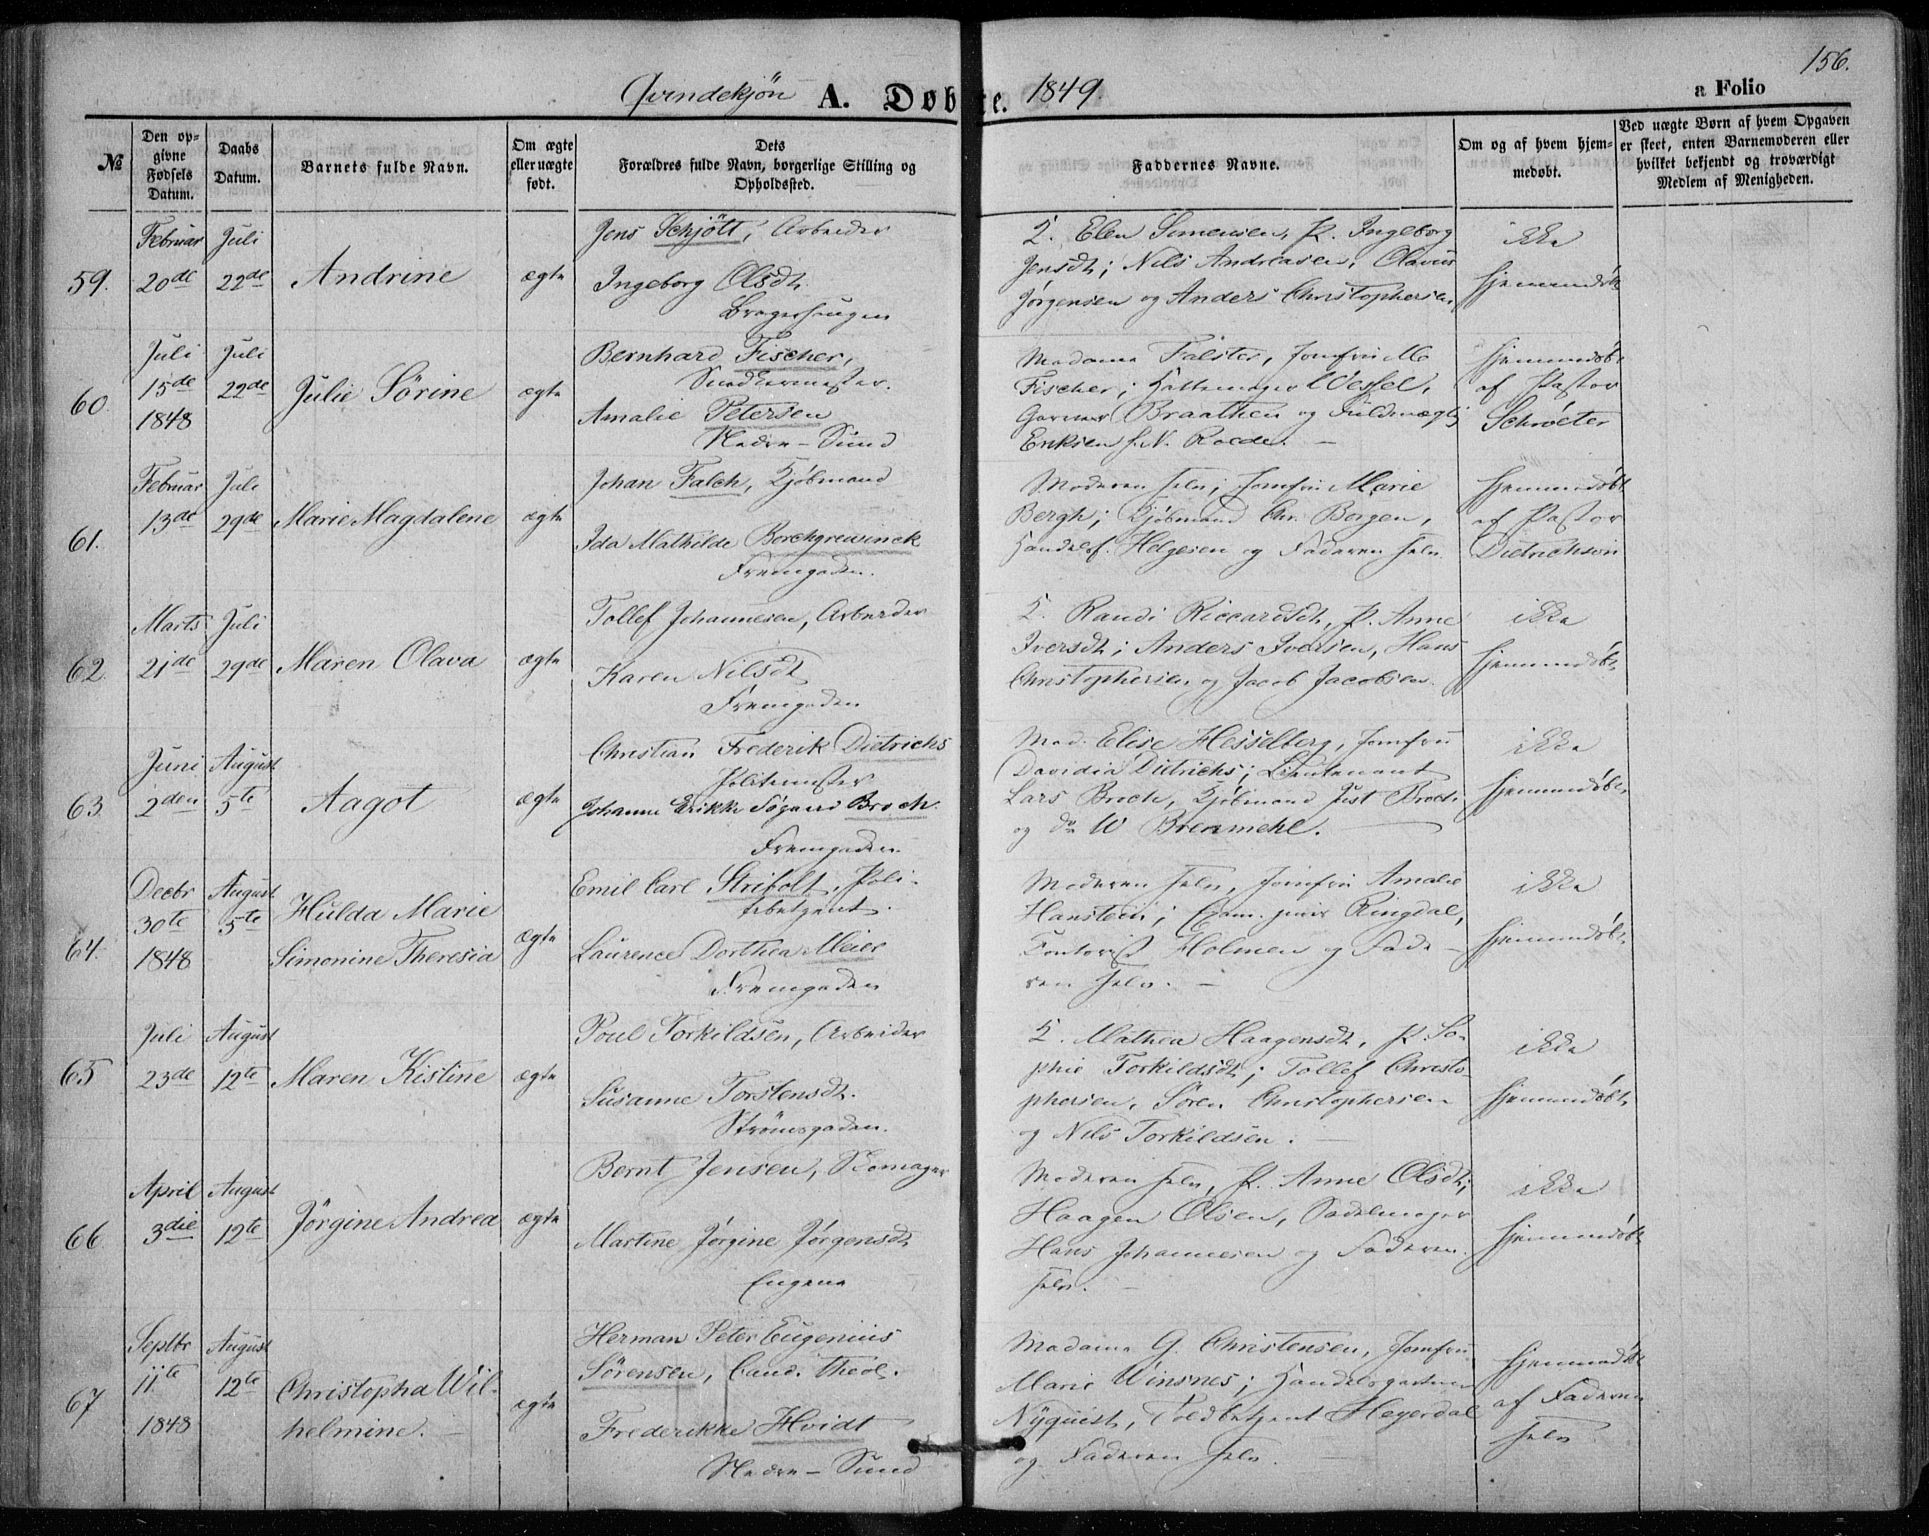 156.
Qvindekjön A. Døbte. 1849.
a Folio
№
Den op-
givne
Fødsels
Datum.
Daabs
Datum.
Barnets fulde Navn.
Om ægte
eller uægte
født.
Dets
Forældres fulde Navn, borgerlige Stilling og
Opholdssted.
Faddernes Navne.
Om og af hvem hjem-
medøbt.
Ved uægte Børn af hvem Opgaven
er skeet, enten Barnemoderen eller
hvilket bekjendt og troværdigt
Medlem af Menigheden.
59.
Februar
20de
Juli
22de
Andrine
ægte
Jens Schjött, Arbeider
Ingeborg Olsdt.
Bragerhaugen
K. Elen Simensen, P. Ingeborg
Jensdt; Nils Andreasen, Olavus
Jørgensen og Anders Christophersen
ikke
hjemmedøbt
60
Juli
15de
1848
Juli
22de
Julie Sörine
ægte
Bernhard Fischer,
Snedkermester.
Amalie Petersen
Nedre-Sund
Madame Falster, Jomfru M
Fischer; Hattemager Wessel,
Garver Braathen og Fuldmægtig
Eriksen f. N. Roede. —
hjemmedøbt
af Pastor
Schröeter
61.
Februar
13de
Juli
29de
Marie Magdalene
ægte
Johan Falch, Kjøbmand
Ida Mathilde Borchgrewinck
Fremgaden.
Moderen selv, Jomfru Marie
Bergh; Kjøbmand Chr. Borgen,
Handelsf. Helgesen og Faderen selv
hjemmedøbt
af Pastor
Dietrichson
62.
Marts
21de
Juli
29de
Maren Olava
ægte
Tollef Johannesen, Arbeider
Karen Nilsdt
Fremgaden
K. Randi Riccardsdt, P. Anne
Iversdt; Anders Iversen, Hans
Christophersen og Jacob Jacobsen.
ikke
hjemmedøbt
63.
Juni
2den
August
5te
Aagot
ægte
Christian Frederik Dietrichs
Politimester
Johanne Erikke Segard Broch.
Fremgaden
Mad. Elise Hesselberg, Jomfru
Davidia Dietrichs; Lieutenant
Lars Broch, Kjøbmand Just Broch
og do W Brenmehl. —
ikke
hjemmedøbt
64.
Decbr
30te
1848
August
5te
Hulda Marie
Simonine Theresia
ægte
Emil Carl Stribolt, Poli-
tibetjent.
Laurence Dorthea Meier
Fremgaden
Moderen selv, Jomfru Amalie
Hanstein; Exam. juris Ringdal,
Contorist Holmen og Fade-
ren selv. —
ikke
hjemmedøbt
65
Juli
23de
August
12te
Maren Kistine
ægte
Poul Torkildsen, Arbeider
Susanne Torstensdt.
Strömsgaden.
K. Mathea Haagensdt, P. So-
phie Torkildsdt; Tollef Christo-
phersen, Sören Christophersen
og Nils Torkildsen. —
ikke
hjemmedøbt
66
April
3die
August
12te
Jörgine Andrea
ægte
Bernt Jensen, Skomager
Martine Jörgine Jörgensdt
Engene
Moderen selv, P. Anne Olsdt;
Haagen Olsen, Sadelmager
Hans Johannesen og Faderen
selv. —
ikke
hjemmedøbt
67
Septbr
11te
1848
August
12te
Christopha Wil-
helmine. —
ægte
Herman Peter Eugenius
Sörensen, Cand. theol.
Frederikke Hvidt
Nedre-Sund
Madame G. Christensen, Jomfru
Marie Winsnes; Handelsgartner
Nyquist, Toldbetjent Heyerdal
og Faderen selv. —
hjemmedøbt
af Faderen
selv